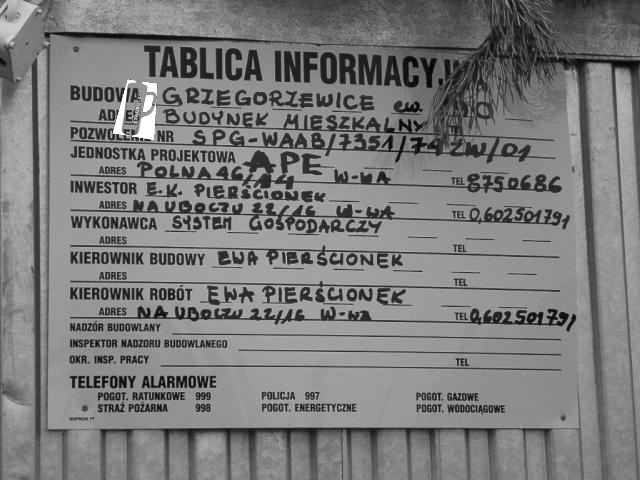 TABLICA INFORMACYJNA
BUDOWA GRZEGORZEWICE ew.
ADRES BUDYNEK MIESZKALNY
POZWOLENIE NR SPG-WAAB/7351/74 ZW/01
JEDNOSTKA PROJEKTOWA APE
ADRES POLNA 46/14 W-WA TEL 8750686
INWESTOR E.K. PIERŚCIONEK
ADRES NA UBOCZU 22/16 W-WA TEL 0,602501791
WYKONAWCA SYSTEM GOSPODARCZY
ADRES TEL
KIEROWNIK BUDOWY EWA PIERŚCIONEK
ADRES TEL
KIEROWNIK ROBÓT EWA PIERŚCIONEK
ADRES NA UBOCZU 22/16 W-WA TEL 0,602501791
NADZÓR BUDOWLANY
INSPEKTOR NADZORU BUDOWLANEGO
OKR. INSP. PRACY TEL
TELEFONY ALARMOWE
POGOT. RATUNKOWE 999 POLICJA 997 POGOT. GAZOWE
STRAŻ POŻARNA 998 POGOT. ENERGETYCZNE POGOT. WODOCIĄGOWE